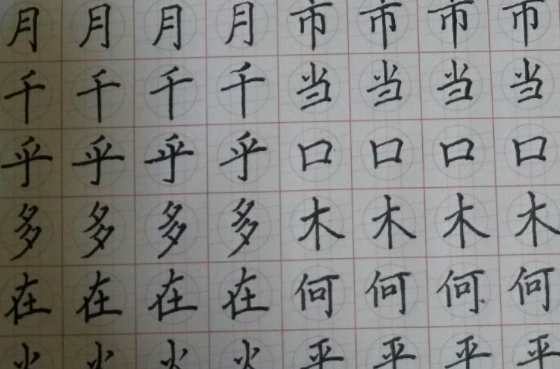 月月月月市市市市
千千千千当当当当
乎乎乎乎口口口口
多多多多木木木木
在在在在何何何何
平平平平